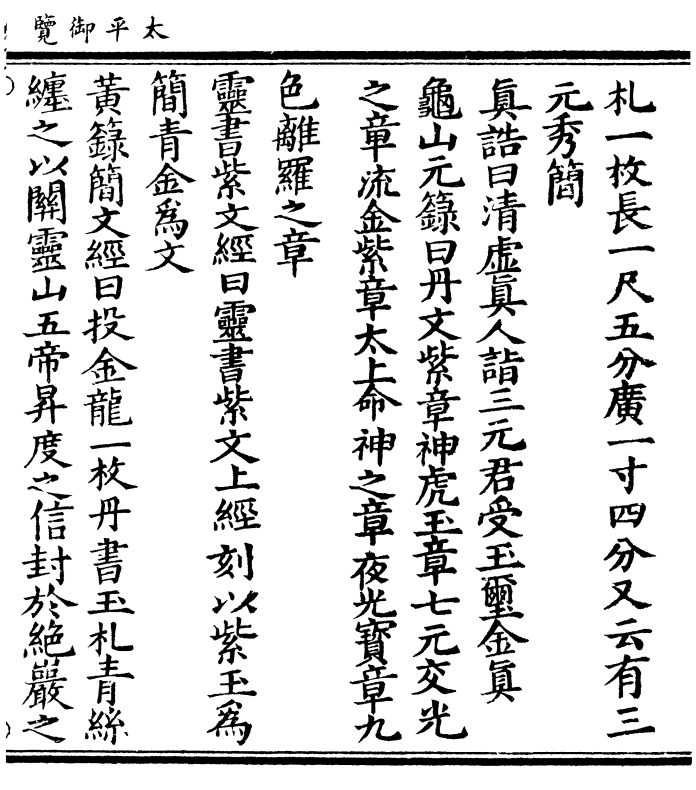 太平御覽
札一枚長一尺五分廣一寸四分又云有三
元秀簡
眞誥曰清虚眞人詣三元君受玉璽金眞
龜山元籙曰丹文紫章神虎玉章七元交光
之章流金紫章太上命神之章夜光寶章九
色離羅之章
靈書紫文經曰靈書紫文上經刻以紫玉爲
簡青金爲文
黃籙簡文經曰投金龍一枚丹書玉札青絲
纏之以關靈山五帝昇度之信封於絶巖之